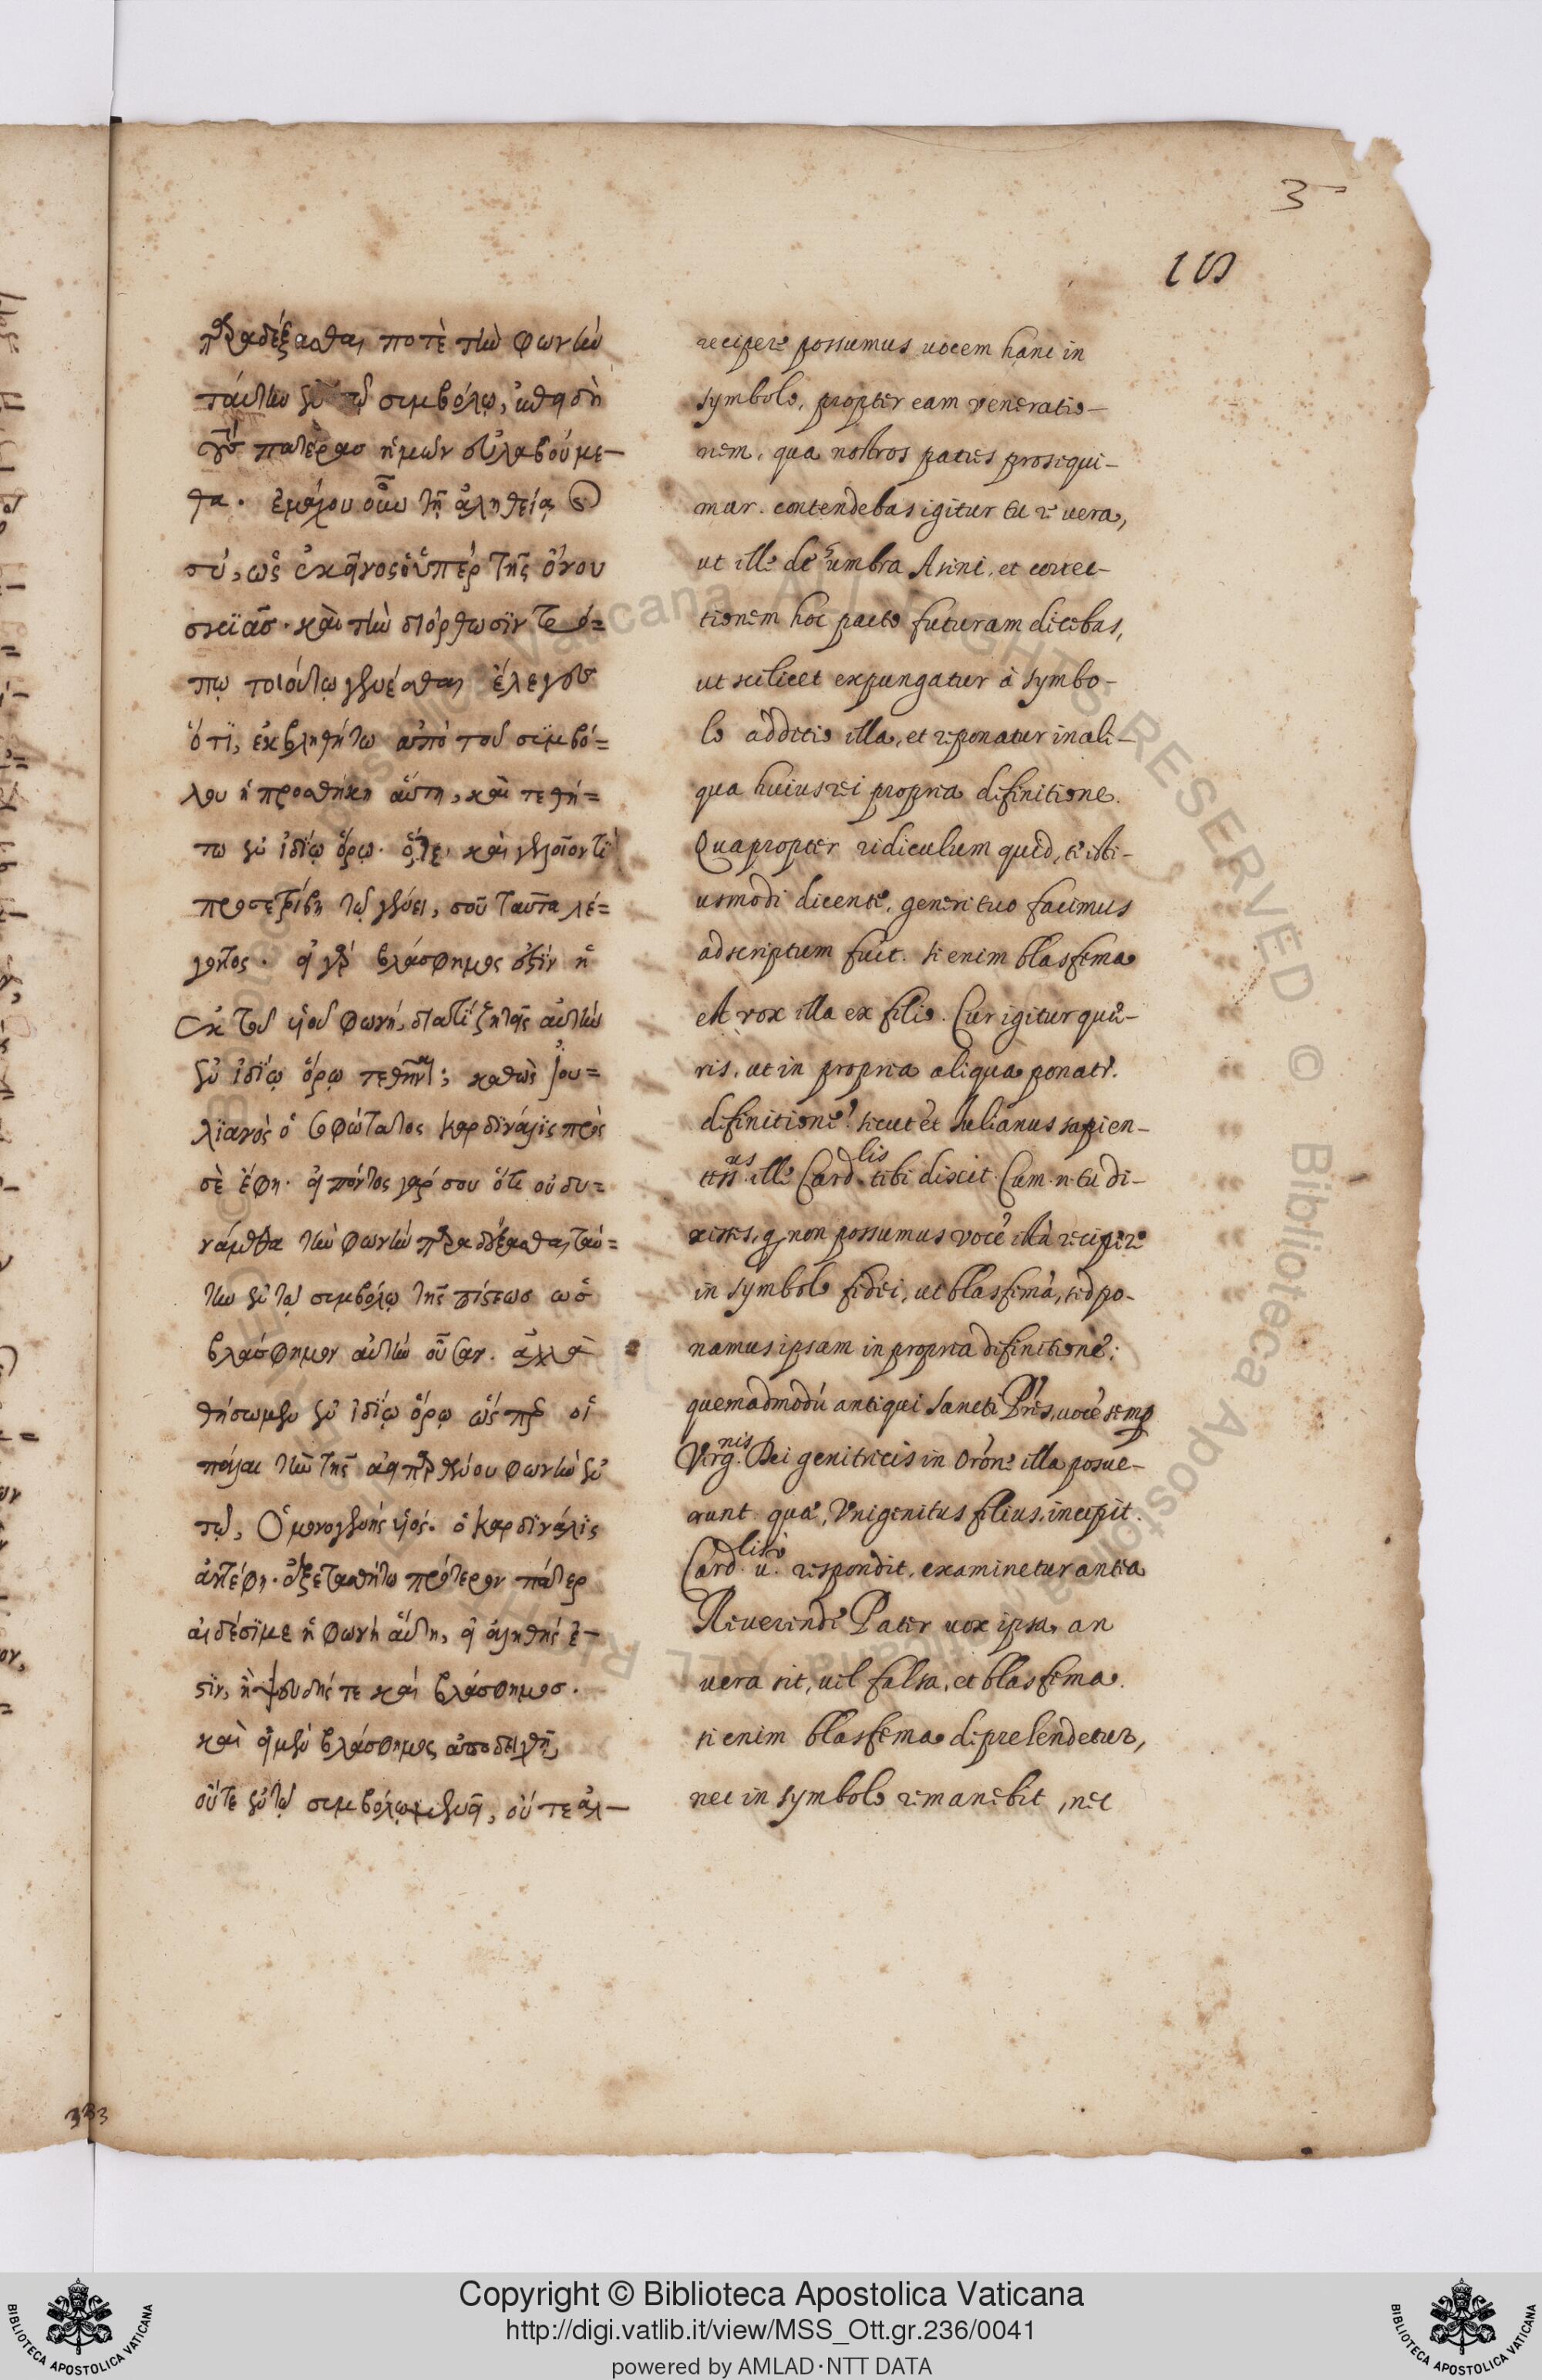 3
παραδέξασθαι ποτὲ τὴν φωνὴν
ταύτην ἐν τῷ συμβόλῳ,
πατέρας ἡμῶν εὐλαβούμε-
θα. ἐμάχου οὖν τῇ ἀληθείᾳ
σύ, ὡς ἐκεῖνος ὁ ὑπὲρ τῆς ὄνου
σκϊᾶσ. καὶ τὴν διόρθωσϊν
πῳ τοιούτῳ γενέσθαι ἔλεγες
ὅτϊ, ἐκβληθήτω ἀπὸ τοῦ συμβό=
λου ἡ προσθήκη αὕτη, καὶ τεθή=
τω ἐν ἰδίῳ ὅρῳ. ὅθεν καὶ γελοῖον τὶ
προσετρίβη τῷ γένει, σοῦ ταῦτα λέ=
γοντος. εἰ γὰρ βλάσφημος ἐστὶν ἡ
ἐκ τοῦ υἱοῦ φωνή, διατί ζητεῖς αὐτὴν
ἐν ἰδίῳ ὅρῳ τεθῆναι; καθὼς Ἰου=
λϊανὸς ὁ σοφώτατος καρδϊνάλϊς πρὸς
σὲ ἔφη. εἰπόντος γάρ σου ὅτι οὐ δυ=
νάμεθα τὴν φωνὴν παραδέξασθαι ταύ=
την ἐν τῷ συμβόλῳ τῆς πίστεωσ ὡσ
βλάσφημον αὐτὴν οὖσαν. ἀλλὰ
θήσωμεν ἐν ἰδίῳ ὅρῳ ὥσπερ οἱ
πάλαι τὴν τῆς ἀειπαρθένου φωνὴν ἐν
τῷ, Ὁ μονογενὴς υἱός. ὁ καρδϊνάλϊς
ἀντέφη. ἐξετασθήτω πρότερον πάτερ
αἰδέσϊμε ἡ φωνὴ αὕτη, εἰ ἀληθής ἐ-
στϊν, ἢ ψευδής τε καὶ βλάσφημοσ.
καὶ εἰ μὲν βλάσφημος ἀποδειχθῇ,
οὔτε ἐν τῷ συμβόλῳ μενεῖ, οὔτε ἀλ-
recipere possumus uocem hanc in
symbolo, propter eam veneratio-
nem, qua nostros patres prosequi-
mur. contendebas igitur tu re uera,
ut ille de umbra Asini, et correc-
tionem hoc pacto futuram dicebas,
ut scilicet expungatur à symbo-
lo additio illa, et reponatur in ali-
qua huius rei propria definitione.
Quapropter ridiculum quid, te isti-
usmodi dicente, generi tuo facimus
adscriptum fuit. si enim blasfema
est vox illa ex filio. Cur igitur quæ-
ris, ut in propria aliqua ponatr.
definitione? sicut et Iulianus sapien-
tiss.us ille Card.lis tibi dixit. Cum .n. tu di-
xisses, q, non possumus vocē illā recipere
in symbolo fidei, ut blasfemā, sed po-
namus ipsam in propria definitione;
quemadmodū antiqui sancti Prēs, uocē semp
Virg.nis Dei genitricis in Orōne illa posue-
runt. quæ, Vnigenitus filius, incipit.
Card.lis u.o respondit, examinetur antea
Reuerende Pater uox ipsa, an
vera sit, uel falsa, et blasfema.
si enim blasfema deprehendetur,
nec in symbolo remanebit, nec
333
Copyright © Biblioteca Apostolica Vaticana
http://digi.vatlib.it/view/MSS_Ott.gr.236/0041
powered by AMLAD·NTT DATA
BIBLIOTECA APOSTOLICA VATICANA
BIBLIOTECA APOSTOLICA VATICANA